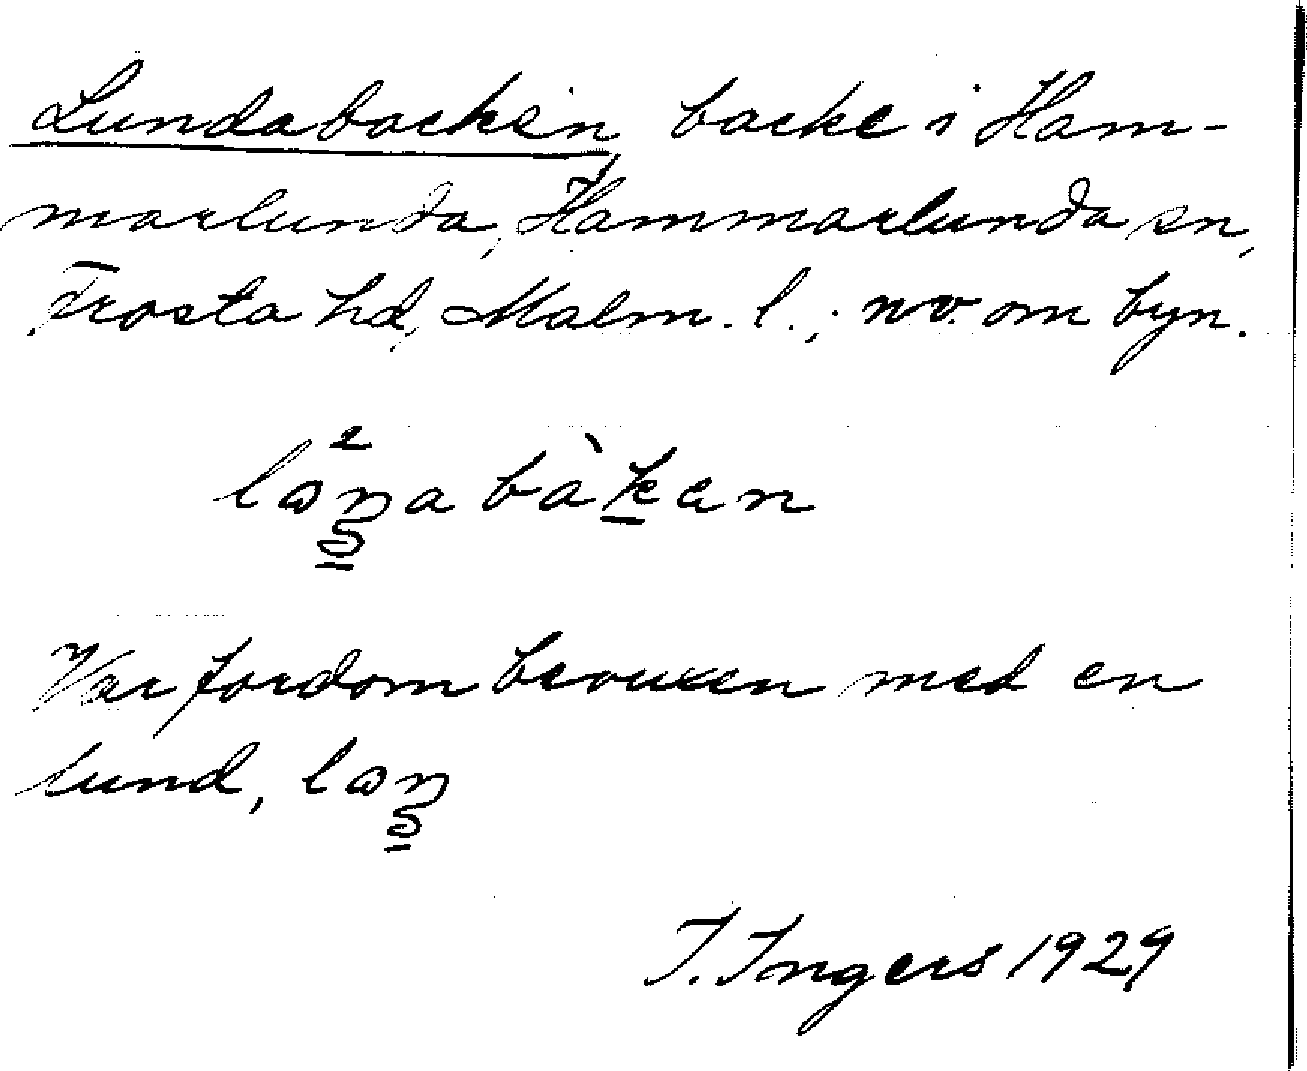 Lundabacken, backe i Ham-
marlunda, Hammarlunda sn,
Frosta hd, Malm. l.; nv. om byn.
bàken
Var fordom bevuxen med en
lund,
I. Ingers 1929